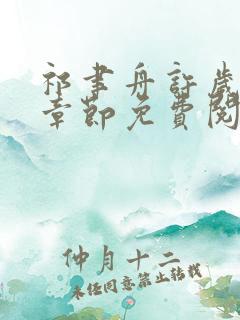 祁書舟許歲
章節免費閱
仲月十二
未经同意禁止转载